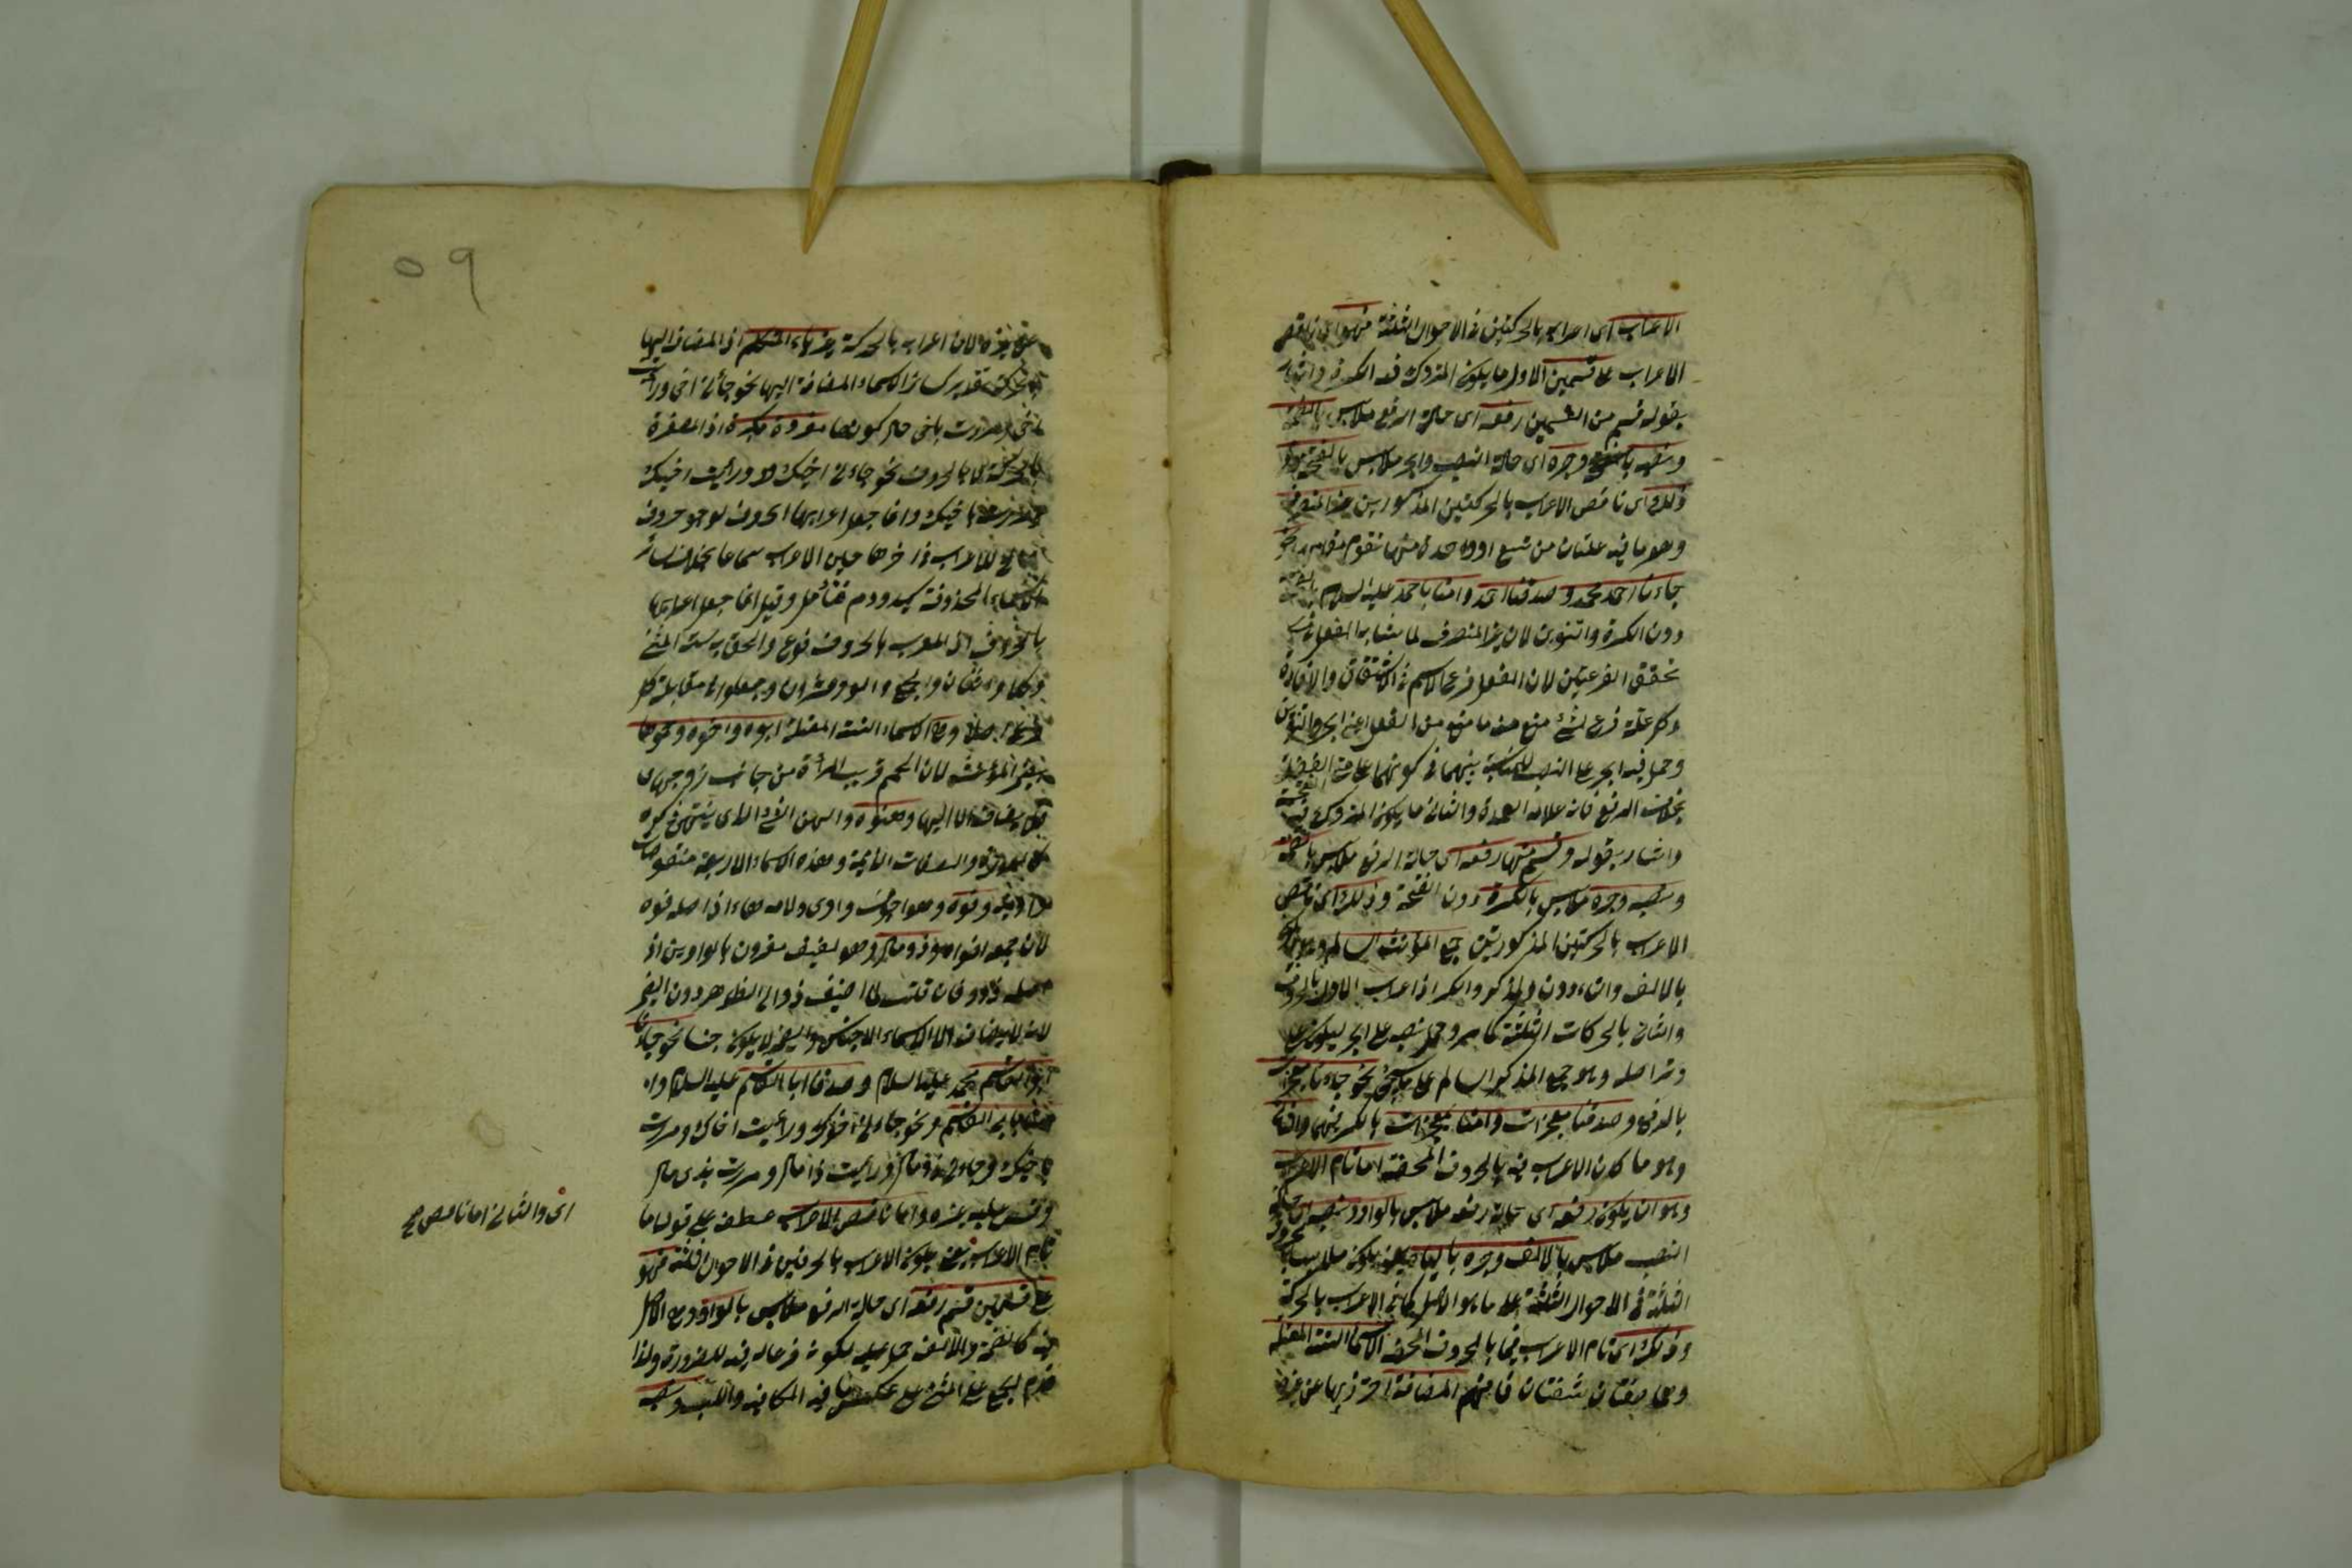 الاعراب اى اعرابه بالحركتين فى الاحوال الثلثة فهو اى ناقص
الاعراب على قسمين الاول ما يكون المتروك فيه الكسرة واشار
بقوله قسم من القسمين رفعه اى حالة الرفع ملابس بالضمة
ونصبه بالفتح وجره اى حالة النصب والجر ملابس بالفتحة
وذلك اى ناقص الاعراب بالحركتين المذكورين غير المنصرف
وهو ما فيه علتان من تسع او واحدة منها تقوم مقامهما نحو
جاءنا احمد محمد وصدقنا احمد وامنا باحمد عليه السلام
دون الكسرة والتنوين لان غير المنصرف لما شابه الفعل فى
تحقق الفرعيتين لان الفعل فرع الاسم فى الاشتقاق والافادة
وكل علة فرع لشئ منع منه ما منع من الفعل اعنى الجر والتنوين
وحمل فيه الجر على النصب للمناسبة بينهما فى كونهما علامتى الفضلة
بخلاف الرفع فانه علامة العمدة والثانى ما يكون المتروك فيه الفتحة
واشار بقوله وقسم منها رفعه اى حالة الرفع ملابس بالضمة
ونصبه وجره ملابس بالكسرة دون الفتحة وذلك اى ناقص
الاعراب بالحركتين المذكورتين جمع المؤنث السالم وهو
بالالف والتاء دون المذكر والمكسر اذ اعراب الاول بالحروف
والثانى بالحركات الثلثة كما مر وحمل نصبه على الجر ليكون على
وتر اصله وهو جمع المذكر السالم على ما يجئ نحو جاءنا معجزات
بالرفع وصدقنا معجزات وامنا بمعجزات بالكسر فيهما والثانى
وهو ما كان الاعراب فيه بالحروف المحضة اما تام الاعراب
وهو ان يكون رفعه اى حالة رفعه ملابس بالواو ونصبه اى حالة
النصب ملابس بالالف وجره بالياء فحينئذ يكون ملابسا بالحروف
الثلثة فى الاحوال الثلثة على ما هو الاصل كما فى الاعراب بالحركة
وذلك اى تام الاعراب فيما بالحروف المحضة الاسماء الستة المعتلة
وهما صفتان فافهم المضافة احترز بها عن غيره
لان اعرابه بالحركة غير ياء المتكلم اذ المضاف اليها
تقديرى كسائر الاسماء المضافة اليها نحو جائنى اخى ورأيت
اخى ومررت باخى حال كونها مفردة مكبرة اذ المصغرة
بالحركة لا بالحروف نحو جاءنى اخيك ورأيت اخيك
ومررت باخيك وانما جعل اعرابها الحروف لوجود حروف
للاعراب فى اخرها حين الاعراب سماعا بخلاف سائر
الاسماء المحذوفة كيد ودم فتأمل وقيل انما جعل اعرابها
بالحروف لان المعرب بالحروف فرع والحق به ستة المثنى
وكلا واثنان والجمع واولو وعشرون وجعلوا فى مقابلة كل
فرع اصلا وهى الاسماء الستة المعتلة ابوه واخوه وحموها
بضمير المؤنث لان الحم قريب المرأة من جانب زوجها
فلا يضاف الا اليها وهنوه والهن الشئ الذى يستهجن ذكره
كالعورة والصفات الذميمة وهذه الاسماء الاربعة منقوصات
واوية وفوه وهو اجوف واوى ولامه هاء اذ اصله فوه
لان جمعه افواه وذو مال وهو لفيف مقرون بالواوين اذ
اصله ذوو فان قلت لما اضيف ذو الى الظاهر دون الضمير
لانه لا يضاف الا الى الاسماء الاجناس والضمير لا يكون جنسا نحو جاءنا
ابو القاسم محمد عليه السلام وصدقنا ابا القاسم عليه السلام وا
منا بابى القاسم ونحو جاءنى اخوك ورأيت اخاك ومررت
باخيك وجاءنى ذو مال ورأيت ذا مال ومررت بذى مال
وقس عليه غيره واما ناقص الاعراب عطف على قوله اما
تام الاعراب يعنى يكون الاعراب بالحرفين فى الاحوال الثلثة فهو
على قسمين قسم رفعه اى حالة الرفع ملابس بالواو وهو الاصل
فيه كالضمة والالف حمل عليه لكونه فرعا له فيه للضرورة ولذا
قدم الجمع على المثنى على عكس ما فيه الكافية واللب ونصبه
اى والثانى اما ناقص صح
٥٩